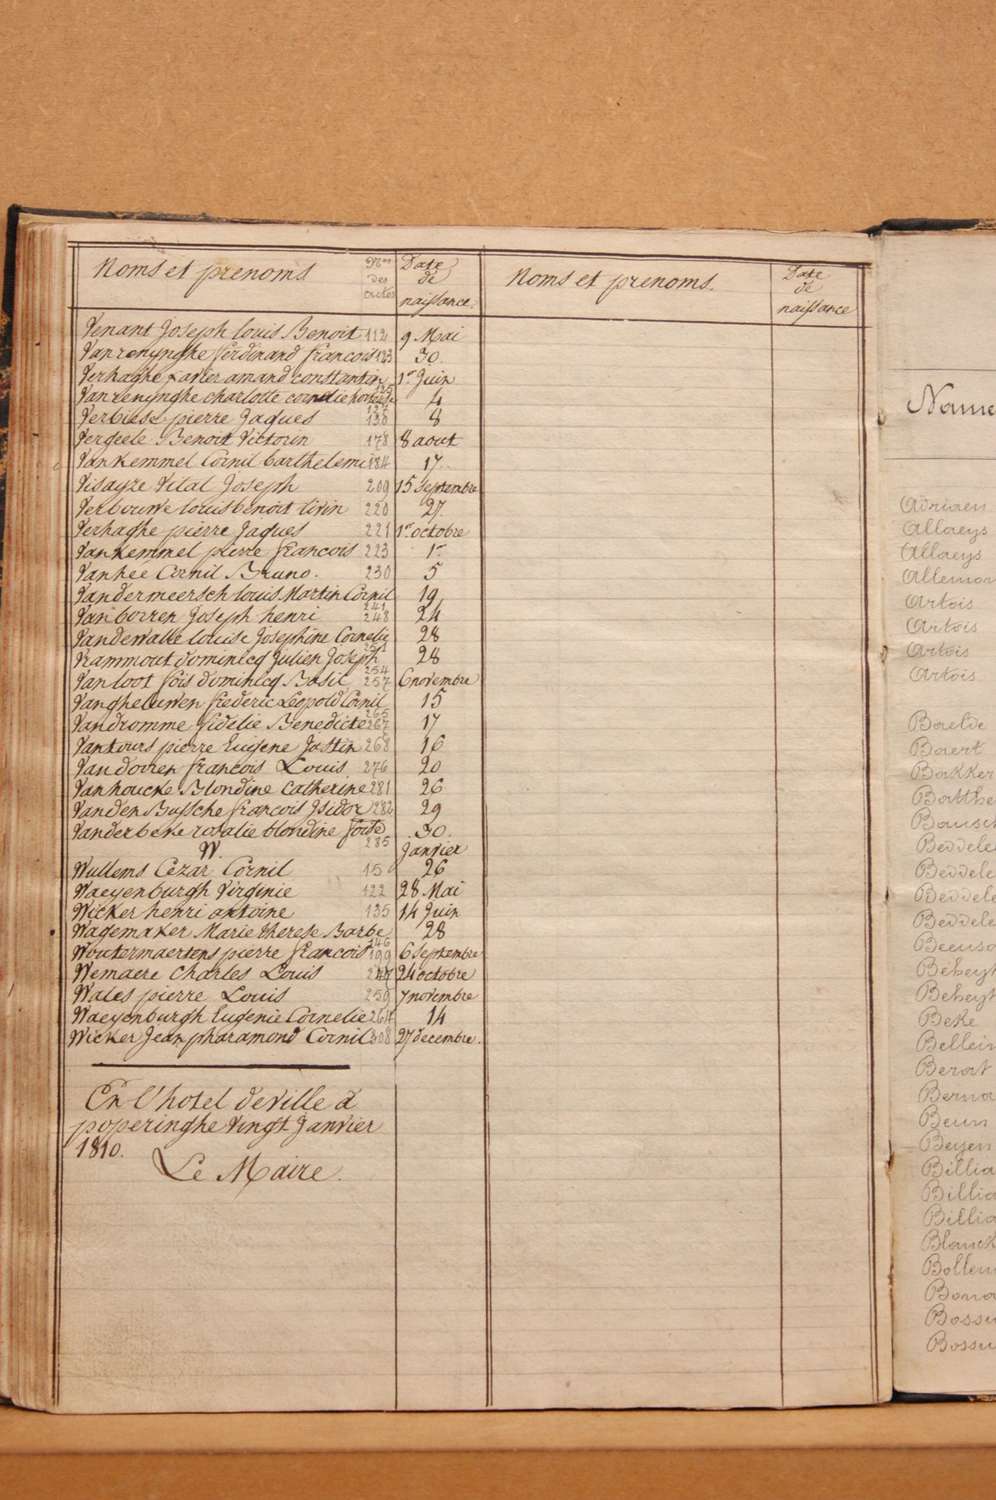 Noms et prenoms | Nos des actes | Date de naissance | Noms et prenoms. | Date de naissance
Venant Joseph Louis Benoit 112 9 Mai
Vanrenynghe ferdinand francois 123 30
Verhaghe xavier amand constantin 1er Juin
Vanrenynghe charlotte cornelie 125 4
Verbiese pierre Jaques 138 8
Vergeele Benoit Victorin 178 8 aout
Vankemmel Cornil barthelemi 184 17
Visayze Vital Joseph 209 15 Septembre
Verbouwe louis benoit livin 220 27
Verhaghe pierre Jaques 221 1er octobre
Vankemmel pierre francois 223 1er
Vanhee Cornil Bruno. 230 5
Vandermeersch louis Martin Cornil 241 19
Van borren Joseph henri 248 24
Vandewalle louise Josephine Cornelie 251 28
Vrammout dominicq Julien Joseph 254 28
Van loot fois dominicq Basil 257 6 novembre
Vangheluwen frederic Leopold Cornil 265 15
Vandromme fidelie Benedicte 267 17
Vantours pierre Eugene Jostin 268 16
Vandorren francois Louis 276 20
Vanhoucke Blondine Catherine 281 26
Vanden Bussche francois Isidor 282 29
Vanderbeke rosalie blondine 285 30.
W. Janvier
Wullems Cezar Cornil 15 26
Waeyenburgh Virginie 122 28 Mai
Wicker henri antoine 135 14 Juin
Wagemaker Marie therese Barbe 146 28
Woutermaertens pierre francois 199 6 Septembre
Wemaere Charles Louis 24 octobre
Wales pierre Louis 259 7 novembre
Waeyenburgh Eugenie Cornelie 264 14
Wicker Jean pharamond Cornil 308 27 decembre.
En l'hotel de ville a
poperinghe vingt Janvier
1810.
Le Maire.
Adriaen
Allaeys
Allaeys
Alleman
Artois
Artois
Artois
Artois
Baelde
Baert
Bakker
Batthe
Bausch
Beddele
Beddele
Beddele
Beddele
Beheyt
Beheyt
Beke
Bellein
Berat
Beun
Beyen
Billia
Billia
Billia
Blanck
Bollen
Bossu
Bossu